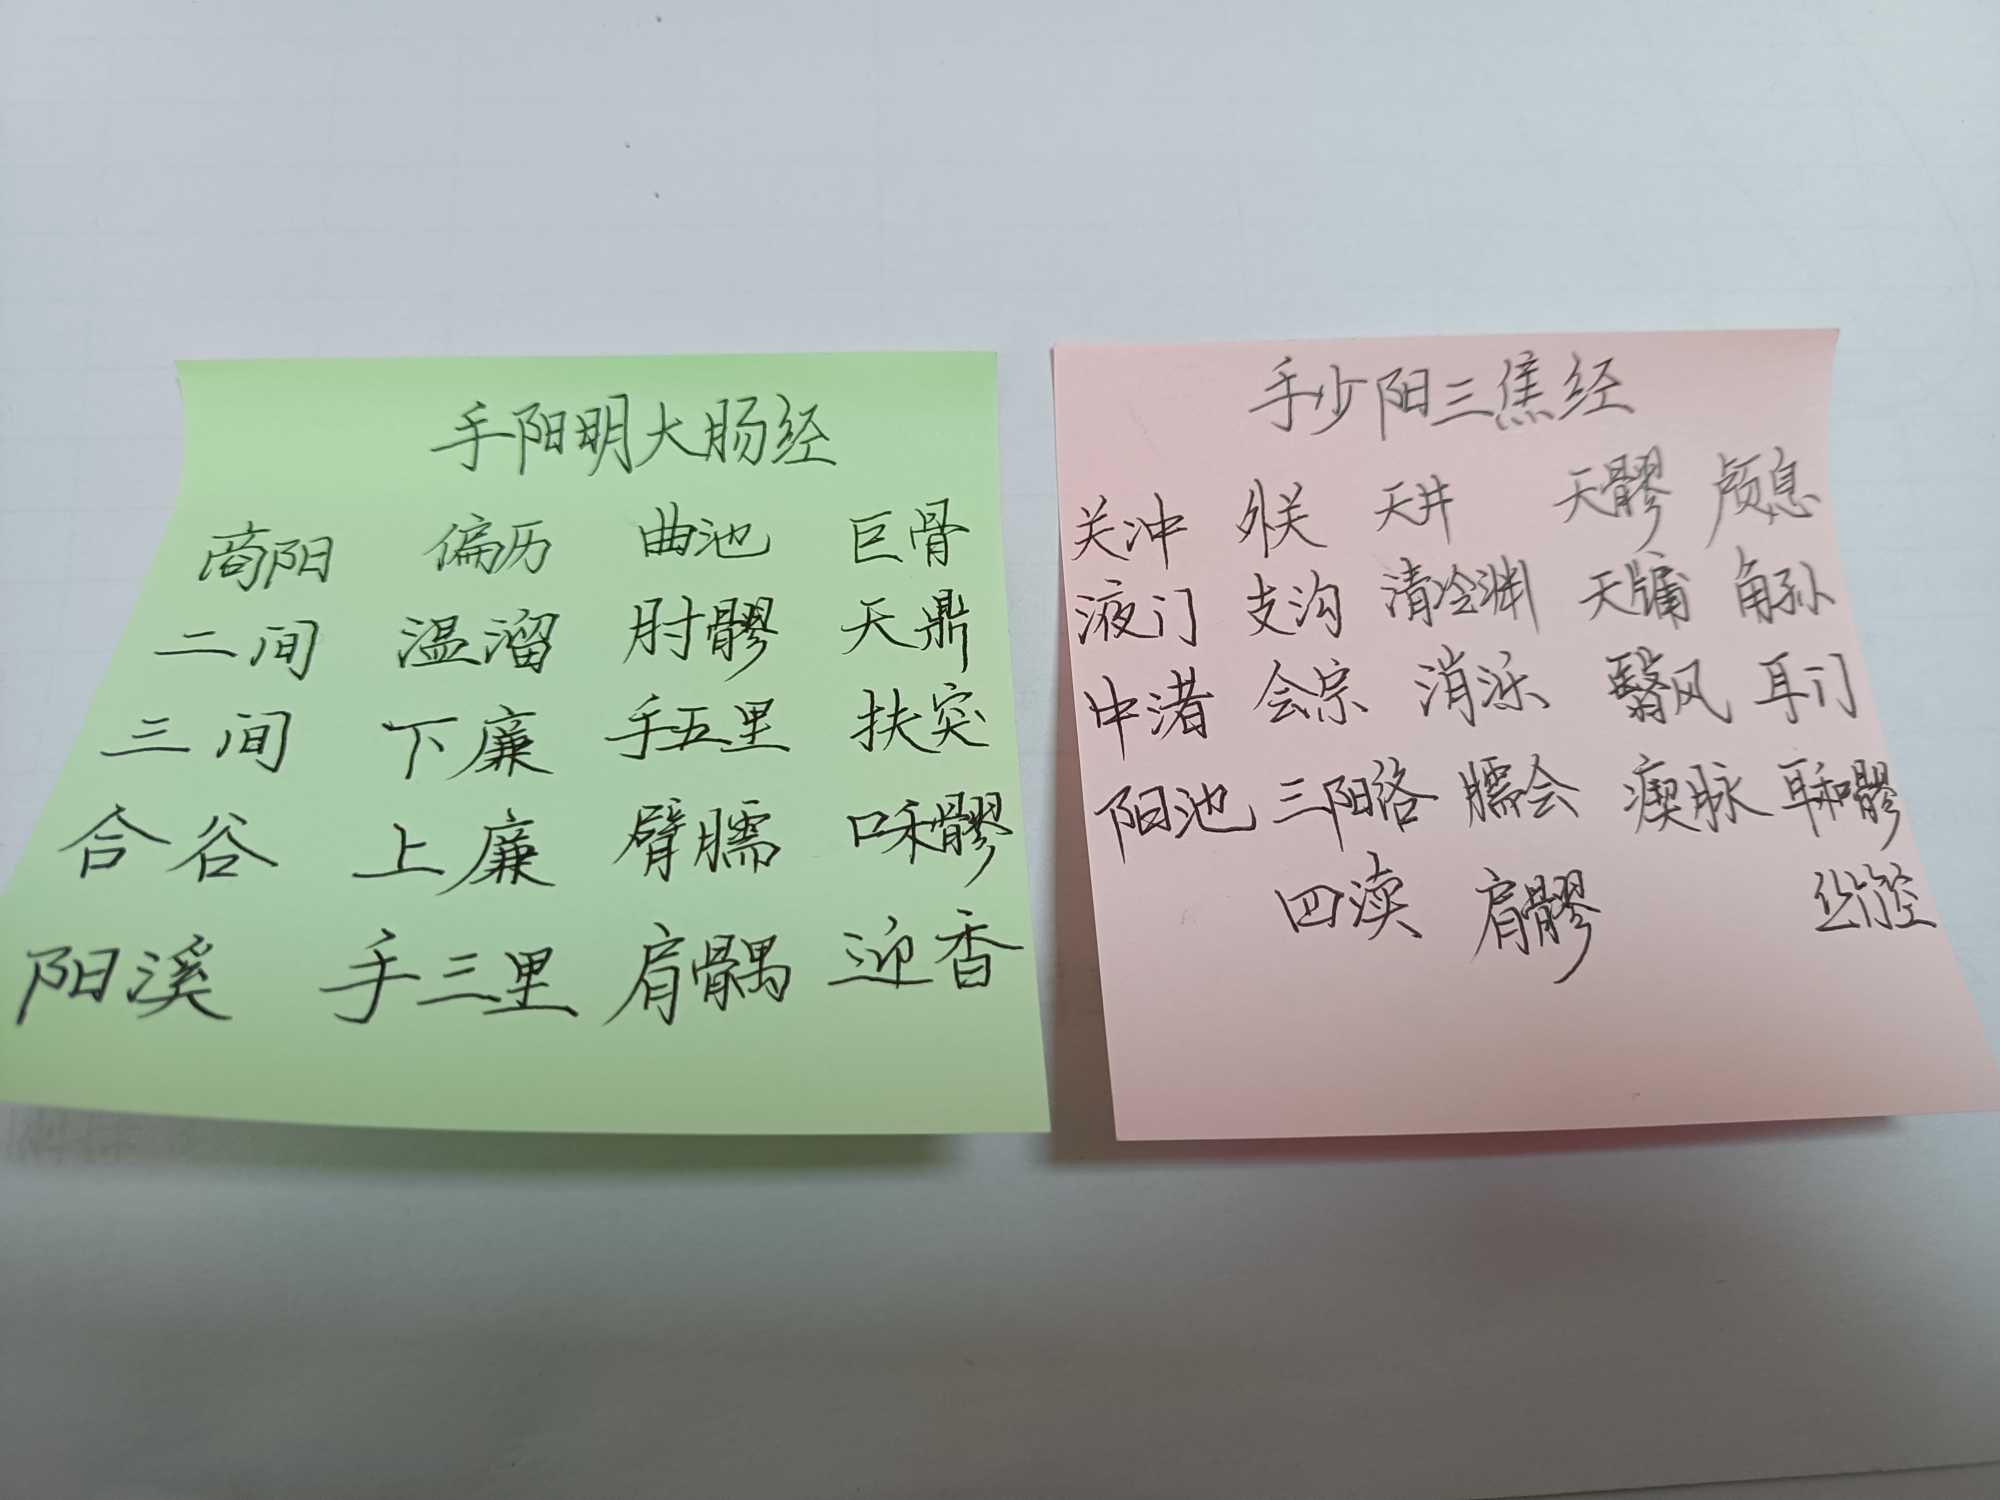 手阳明大肠经
商阳 偏历 曲池 巨骨
二间 温溜 肘髎 天鼎
三间 下廉 手五里 扶突
合谷 上廉 臂臑 口禾髎
阳溪 手三里 肩髃 迎香
手少阳三焦经
关冲 外关 天井 天髎 颅息
液门 支沟 清冷渊 天牖 角孙
中渚 会宗 消泺 翳风 耳门
阳池 三阳络 臑会 瘈脉 耳和髎
四渎 肩髎 丝竹空